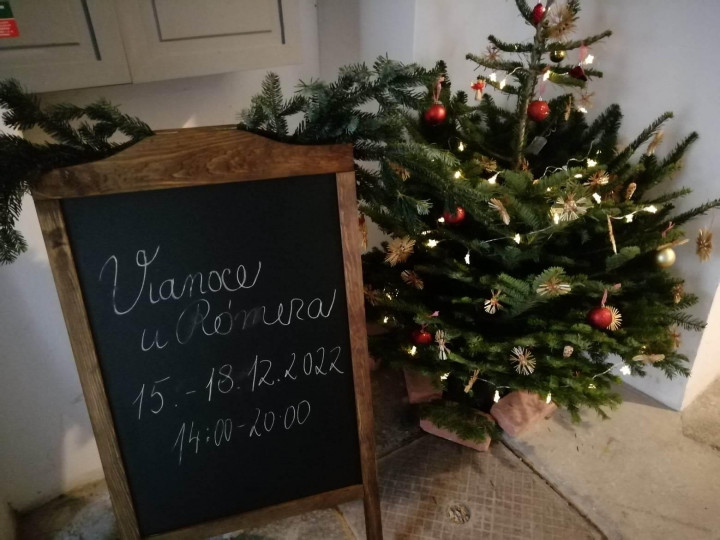 Vianoce
u Rómera
15. - 18.12.2022
14:00-20:00